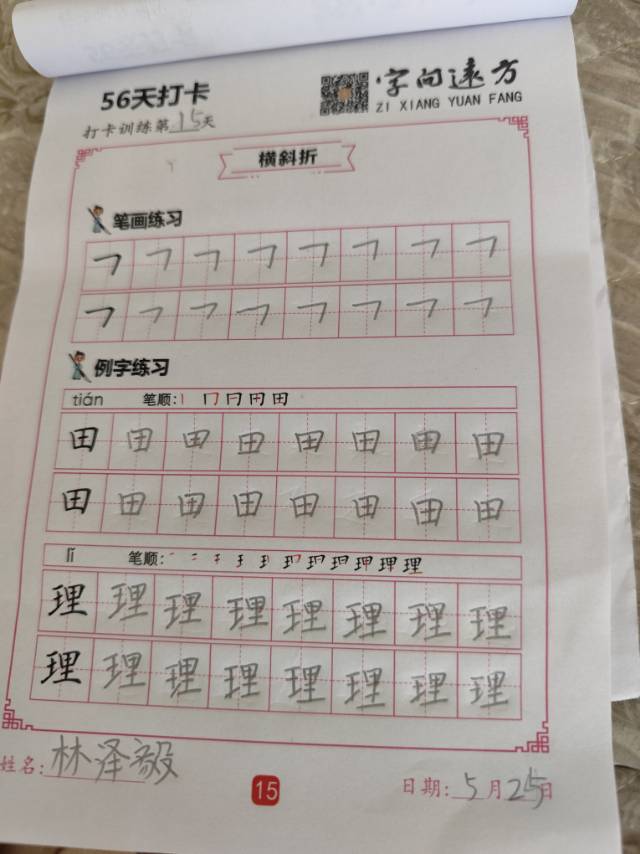 56天打卡
字问远方
ZI XIANG YUAN FANG
打卡训练第15天
横斜折
笔画练习
㇇ ㇇ ㇇ ㇇ ㇇ ㇇ ㇇ ㇇
㇇ ㇇ ㇇ ㇇ ㇇ ㇇ ㇇ ㇇
例字练习
tián 笔顺:丨 冂 冃 田 田
田 田 田 田 田 田 田 田
田 田 田 田 田 田 田 田
lǐ 笔顺:
理 理 理 理 理 理 理 理
理 理 理 理 理 理 理 理
姓名:林泽毅
15
日期:5月25日